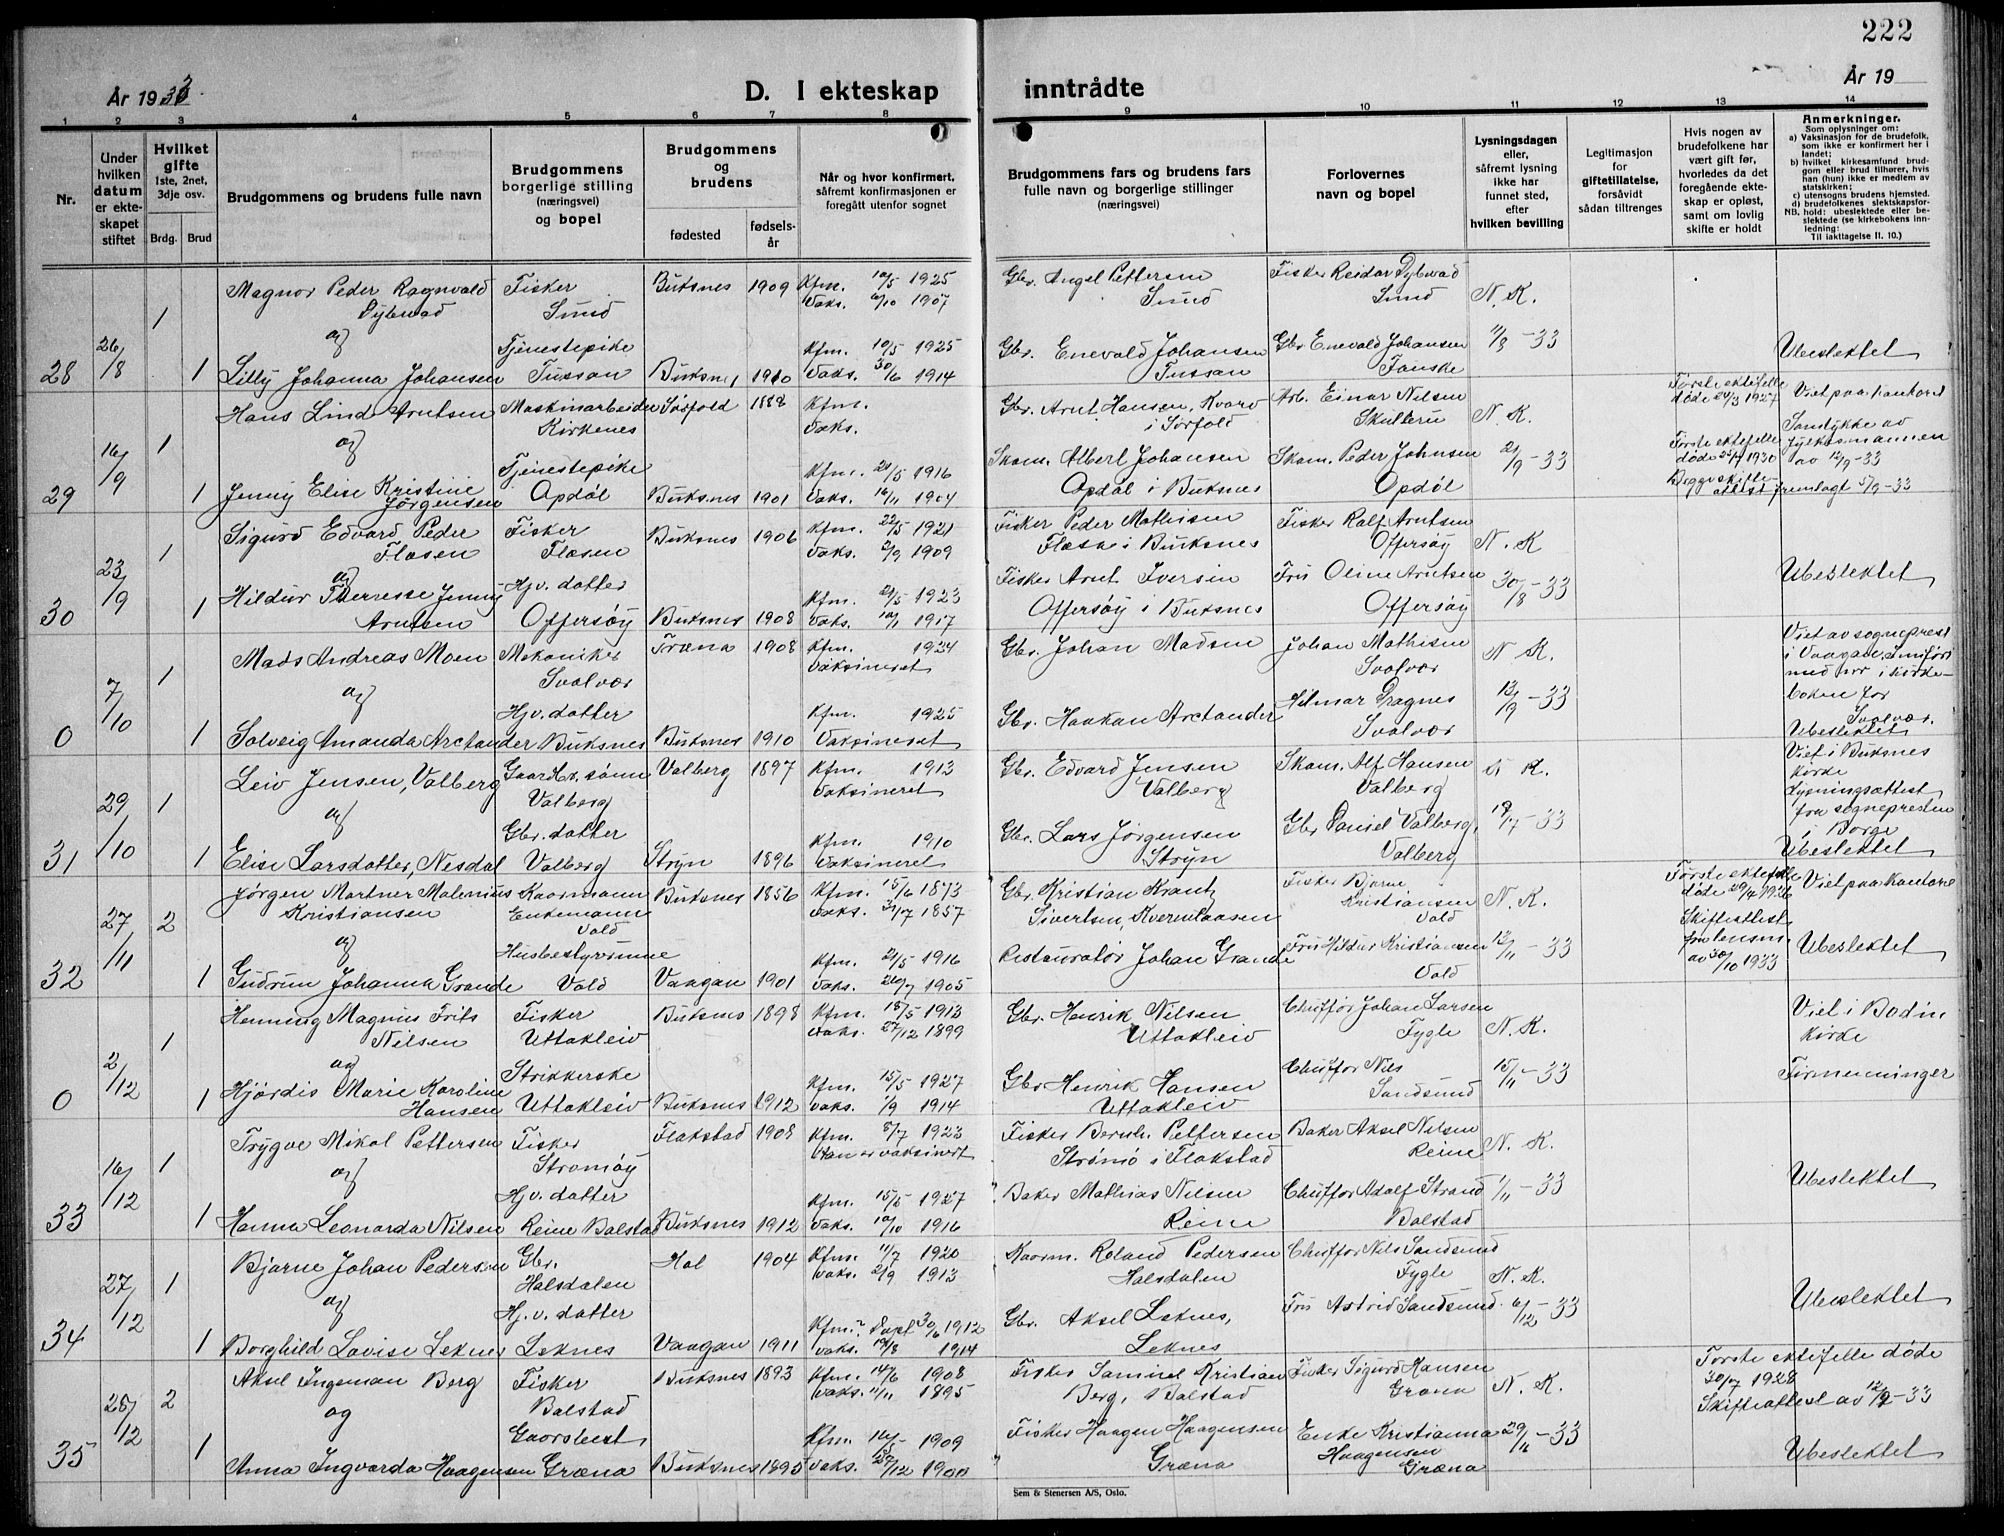 222
År 1933.
D. I ekteskap inntrådte
År 19
1 2 3 4 5 6 7 8 9 10 11 12 13 14
Nr.
Under hvilken datum er ekteskapet stiftet
Hvilket gifte
1ste, 2net, 3dje osv.
Brdg. Brud
Brudgommens og brudens fulle navn
Brudgommens borgerlige stilling (næringsvei) og bopel
Brudgommens og brudens
fødested
fødselsår
Når og hvor konfirmert, såfremt konfirmasjonen er foregått utenfor sognet
Brudgommens fars og brudens fars fulle navn og borgerlige stillinger (næringsvei)
Forlovernes navn og bopel
Lysningsdagen eller, såfremt lysning ikke har funnet sted, efter hvilken bevilling
Legitimasjon for giftetillatelse, forsåvidt sådan tiltrenges
Hvis nogen av brudefolkene har vært gift før, hvorledes da det foregående ekteskap er opløst, samt om lovlig skifte er holdt
Anmerkninger.
Som oplysninger om:
a) Vaksinasjon for de brudefolk, som ikke er konfirmert her i landet;
b) hvilket kirkesamfund brudgom eller brud tilhører, hvis han (hun) ikke er medlem av statskirken;
c) utensogns brudens hjemsted.
d) brudefolkenes slektskapsforhold: ubeslektede eller beslektede (se kirkebokens innledning:
NB.
Til iakttagelse II. 10.)
28 26/8 1 Magnor Peder Ragnvald Dybwad Fisker Sund Buksnes 1909 Kfm. 10/5 1925 Vaks. 1907 Gbr. Angel Pettersen Sund Fisker Reidar Dybwad Sund N. K.
og
1 Lilly Johanna Johansen Tjenestepike Tussan Buksnes 1910 Kfm. 10/5 1925 Vaks. 30/6 1914 Gbr. Enevald Johansen Tussan Gbr. Enevald Johansen 11/8 - 33 Ubeslektet
29 16/9 1 Hans Lind Arntsen Maskinarbeider Kirkenes Sørfold 1888 Kfm. Vaks. Gbr. Arnt Hansen, Kvarv i Sørfold Arb. Einar Nilsen N. K. Første ektefelle døde 1927 Viet paa kontoret
og
1 Jenny Elise Kristine Jørgensen Tjenestepike Opdøl Buksnes 1901 Kfm. 21/5 1916 Vaks. 16/11 1904 Skom. Albert Johansen Opdøl i Buksnes Skom. Peder Johnsen Opdøl 2/9 - 33 Første ektefelle døde 1930 Begge skifteattest fremlagt 5/9 - 33 Samtykke av fylkesmannen av 12/9 - 33
30 23/9 1 Sigurd Edvard Peder Flæsen Fisker Flæsen Buksnes 1906 Kfm. 22/5 1921 Vaks. 2/9 1909 Fisker Peder Mathisen Flæsa i Buksnes Fisker Ralf Arntsen Offersøy N. K
og
1 Hildur Therresse Jenny Arntsen Hjv. datter Offersøy Buksnes 1908 Kfm. 21/5 1923 Vaks. 1917 Fisker Arnt Iversen Offersøy i Buksnes Fru Oline Arntsen Offersøy 30/8 - 33 Ubeslektet
0 7/10 1 Mads Andreas Moen Mekaniker Svolvær Træna 1908 Kfm. 1924 Vaksineret Gbr. Johan Madsen Johan Mathisen Svolvær N. K. Viet av sogneprest i Vaagan. Innført med nr i kirkeboken for Svolvær.
og
1 Solveig Amanda Arctander Hjv. datter Buksnes Buksnes 1910 Kfm. 1925 Vaksineret Gbr. Haakan Arctander Hilmar Dragnes Svolvær 13/9 - 33 Ubeslektet
31 29/10 1 Leiv Jensen, Valberg Gaardbr. sønn Valberg Valberg 1897 Kfm. 1913 Vaksineret Gbr. Edvard Jensen Valberg Skom. Alf Hansen Valberg K. Viet i Buksnes kirke
og
1 Elise Larsdatter, Nesdal Gbr. datter Valberg Stryn 1896 Kfm. 1910 Vaksineret Gbr. Lars Jørgensen Stryn Gbr. Daniel Valberg, Valberg - 33 Lysningsattest fra sognepresten i Borge Ubeslektet
32 27/11 2 Jørgen Martner Malenius Kristiansen Kaarmann Enkemann Vold Buksnes 1856 Kfm. 15/6 1873 Vaks. 1857 Gbr. Kristian Krantz Sivertsen, Fisker Bjarne Kristiansen Vold N. K. Første ektefelle døde 29/4 1926 Viet paa kontoret
og
1 Gudrun Johanna Grande Husbestyrerinne Vold Vaagan 1901 Kfm. 21/5 1916 Vaks. 1905 Restauratør Johan Grande Fru Hildur Kristiansen Vold 12/11 - 33 Skifteattest fra lensm. av 30/10 1933 Ubeslektet
0 2/12 1 Henning Magnus Frits Nilsen Fisker Uttakleiv Buksnes 1898 Kfm. 18/5 1913 Vaks. 27/12 1899 Gbr. Henrik Nilsen Uttakleiv Chuffør Johan Larsen Fygle N. K. Viet i Bodin kirke
og
1 Hjørdis Marie Karoline Hansen Strikkerske Uttakleiv Buksnes 1912 Kfm. 15/5 1927 Vaks. 1/9 1914 Gbr. Henrik Hansen Uttakleiv Chuffør Nils Sandsund 15/11 - 33 Tirmenninger
33 16/12 1 Trygve Mikal Pettersen Fisker Strømøy Flakstad 1908 Kfm. 8/7 1923 Han er vaksinert Fisker Bernh. Pettersen Strømø i Flakstad Baker Aksel Nilsen Reine N. K.
og
1 Hanna Leonarda Nilsen Hjv. datter Reine Balstad Buksnes 1912 Kfm. 15/5 1927 Vaks. 10/10 1916 Baker Mathias Nilsen Reine Chuffør Adolf Strand Balstad 1/11 - 33 Ubeslektet
34 27/12 1 Bjarne Johan Pedersen Gbr. Halsdalen Hol 1904 Kfm. 11/7 1920 Vaks. 2/9 1913 Kaarm. Roland Pedersen Halsdalen Chuffør Nils Sandsund Fygle N. K.
og
1 Borghild Lovise Leknes Hj. v. datter Leknes Vaagan 1911 Kfm.? Døpt 30/6 1912 Vaks. 1914 Gbr. Aksel Leknes, Leknes Fru Astrid Sandsund. 6/12 - 33 Ubeslektet
35 28/12 2 Aksel Ingeman Berg Fisker Balstad Buksnes 1893 Kfm. 14/6 1908 Vaks. 11/11 1895 Fisker Samuel Kristian Berg, Balstad Fisker Sigurd Hansen Græna N. K. Første ektefelle døde 30/7 1928 Skifteattest av 12/9 - 33
og
1 Anna Ingvarda Haagensen Gaardbest. Græna Buksnes 1895 Kfm. 1909 Vaks. 1900 Fisker Haagen Haagensen Græna Enke Kristianna Haagensen Græna 29/11 - 33 Ubeslektet
Sem & Stenersen A/S, Oslo.